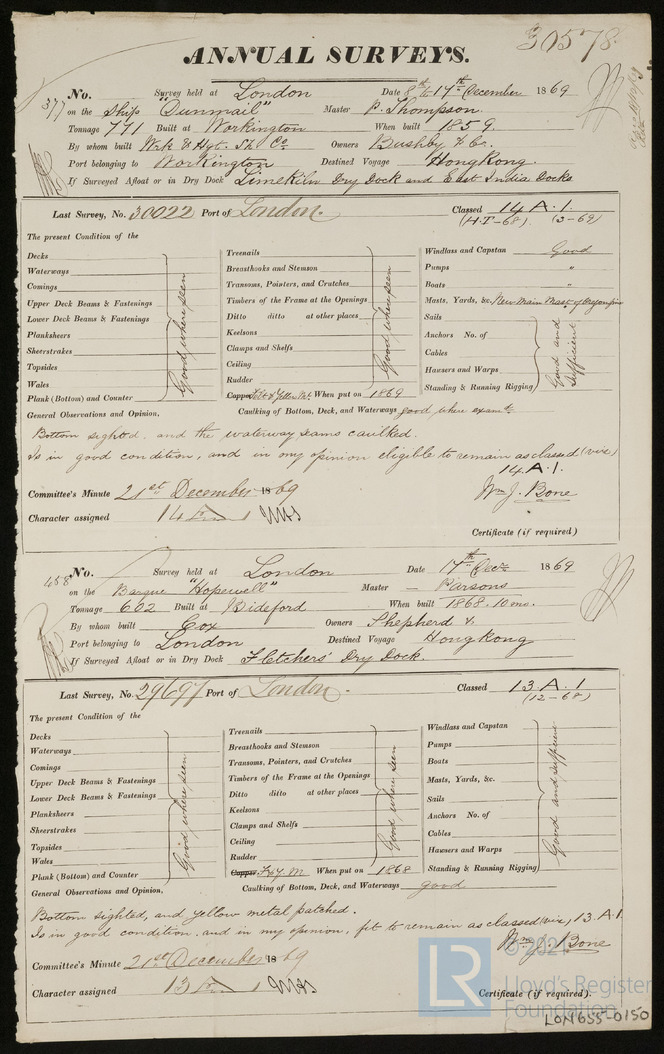 30578.
ANNUAL SURVEYS.
377 No. Survey held at London Date 8th & 17th December 1869
on the Ship "Dunmail" Master P. Thompson.
Tonnage 771 Built at Workington When built 1859.
By whom built Wrk & Hgt. Sh. Co. Owners Bushby & Co.
Port belonging to Workington Destined Voyage Hongkong.
If Surveyed Afloat or in Dry Dock Limekiln Dry Dock and East India Docks
Last Survey, No. 30022 Port of London. Classed 14 A.1.
(H.T-68) (3-69)
The present Condition of the
Decks
Waterways
Comings
Upper Deck Beams & Fastenings
Lower Deck Beams & Fastenings
Planksheers
Sheerstrakes
Topsides
Wales
Plank (Bottom) and Counter
Good where seen
Treenails
Breasthooks and Stemson
Transoms, Pointers, and Crutches
Timbers of the Frame at the Openings
Ditto ditto at other places
Keelsons
Clamps and Shelfs
Ceiling
Rudder
Good where seen
Copper Felt & Yellow Mt. When put on 1869
Windlass and Capstan Good
Pumps "
Boats "
Masts, Yards, &c. New Main Mast of Oregon pine
Sails
Anchors No. of
Cables
Hawsers and Warps
Standing & Running Rigging
Good and Sufficient
General Observations and Opinion, Caulking of Bottom, Deck, and Waterways good where examd.
Bottom sighted, and the waterway seams caulked.
Is in good condition, and in my opinion eligible to remain as classed (viz)
14 A.1.
Wm J. Bone
Committee's Minute 21st December 1869
Character assigned 14 A 1
Certificate (if required)
458 No. Survey held at London Date 17th Decr. 1869
on the Barque "Hopewell" Master — Parsons
Tonnage 602 Built at Bideford When built 1868. 10 mo.
By whom built Cox Owners Shepherd &.
Port belonging to London Destined Voyage Hongkong
If Surveyed Afloat or in Dry Dock Fletchers' Dry Dock.
Last Survey, No. 29697 Port of London. Classed 13 A.1
(12-68)
The present Condition of the
Decks
Waterways
Comings
Upper Deck Beams & Fastenings
Lower Deck Beams & Fastenings
Planksheers
Sheerstrakes
Topsides
Wales
Plank (Bottom) and Counter
Good where seen
Treenails
Breasthooks and Stemson
Transoms, Pointers, and Crutches
Timbers of the Frame at the Openings
Ditto ditto at other places
Keelsons
Clamps and Shelfs
Ceiling
Rudder
Good when seen
Copper F & Y. M. When put on 1868
Windlass and Capstan
Pumps
Boats
Masts, Yards, &c.
Sails
Anchors No. of
Cables
Hawsers and Warps
Standing & Running Rigging
Good and sufficient
General Observations and Opinion, Caulking of Bottom, Deck, and Waterways good
Bottom sighted, and yellow metal patched.
Is in good condition, and in my opinion, fit to remain as classed (viz) 13.A.1.
Wm J. Bone
Committee's Minute 21st December 1869
Character assigned 13 A 1
Certificate (if required).
© 2021
LR
Lloyd's Register
Foundation
LON655-0150